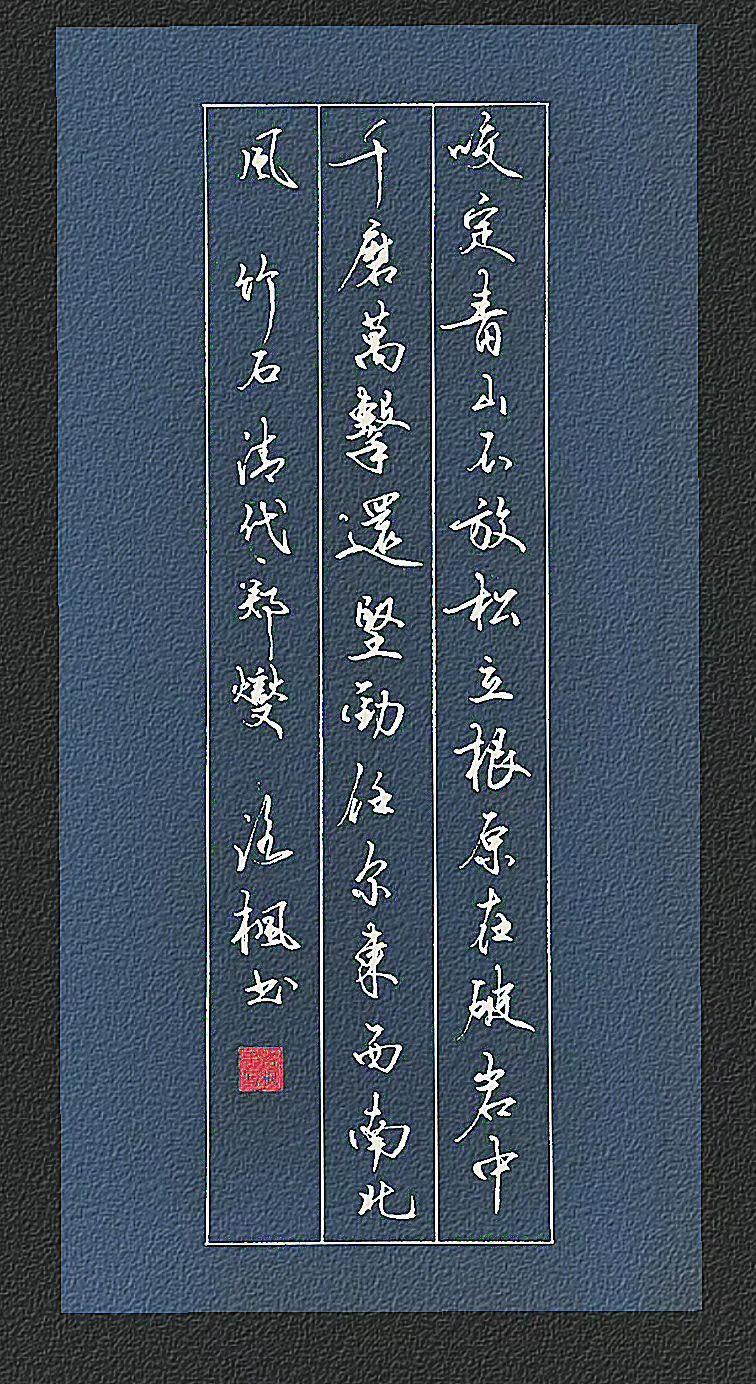 咬定青山不放松立根原在破岩中
千磨萬擊還堅勁任尔東西南北
風 竹石 清代、郑燮 楓书